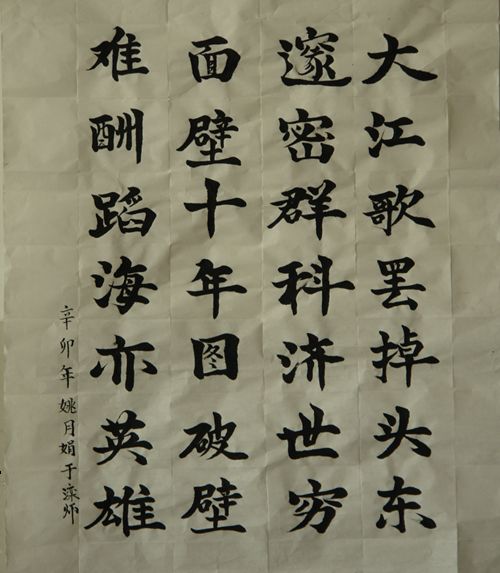 大江歌罢掉头东
邃密群科济世穷
面壁十年图破壁
难酬蹈海亦英雄
辛卯年姚月娟于滦师